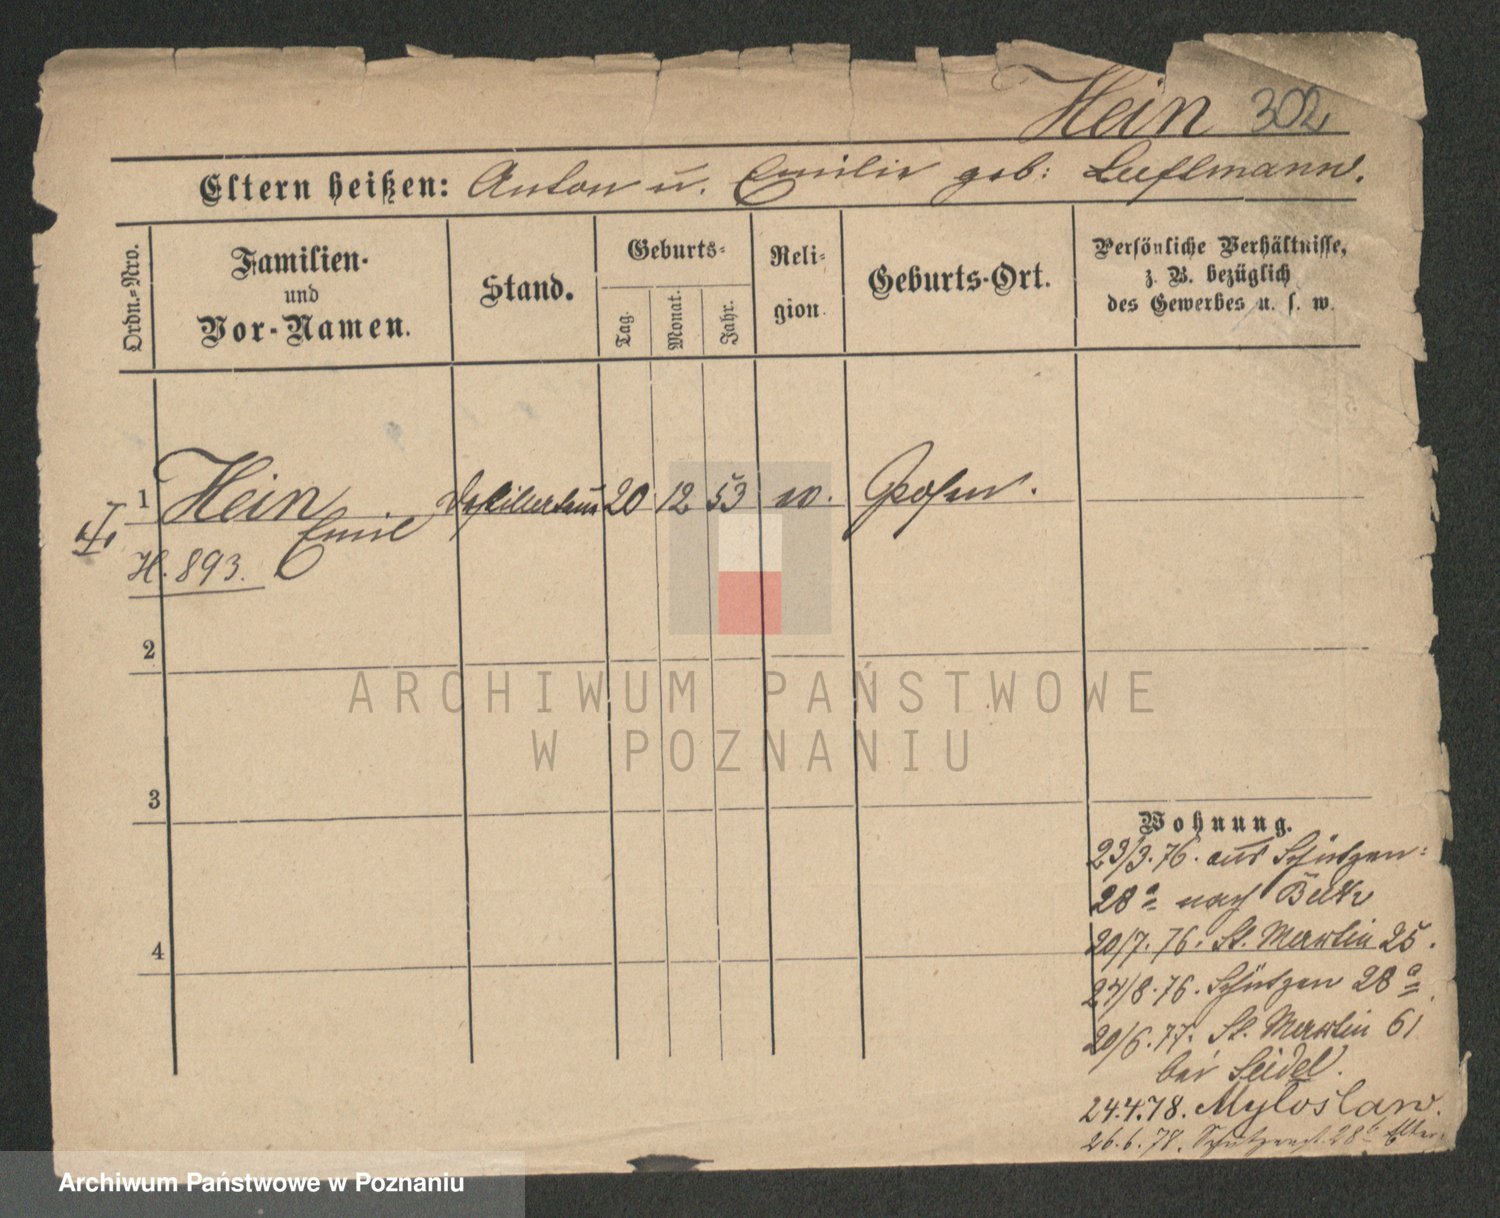 Hein 302
Eltern heißen: Anton u. Emilie geb: Luftmann.
Ordn.-Nro.
Familien-
und
Vor-Namen.
Stand.
Geburts-
Tag.
Monat.
Jahr.
Reli-
gion.
Geburts-Ort.
Persönliche Verhältnisse,
z. B. bezüglich
des Gewerbes u. s. w.
1 Hein 20 12 53 Posen.
Emil
H. 893.
2
3
4
Wohnung.
23/3.76. aus Schützen-
28a nach
20/7.76. St. Martin 25.
24/8.76. Schützen 28a
20/6.77. St. Martin 61
bei Seidel.
24.4.78. Myloslaw.
26.6.78. Schützenst. 28
ARCHIWUM PAŃSTWOWE
W POZNANIU
Archiwum Państwowe w Poznaniu